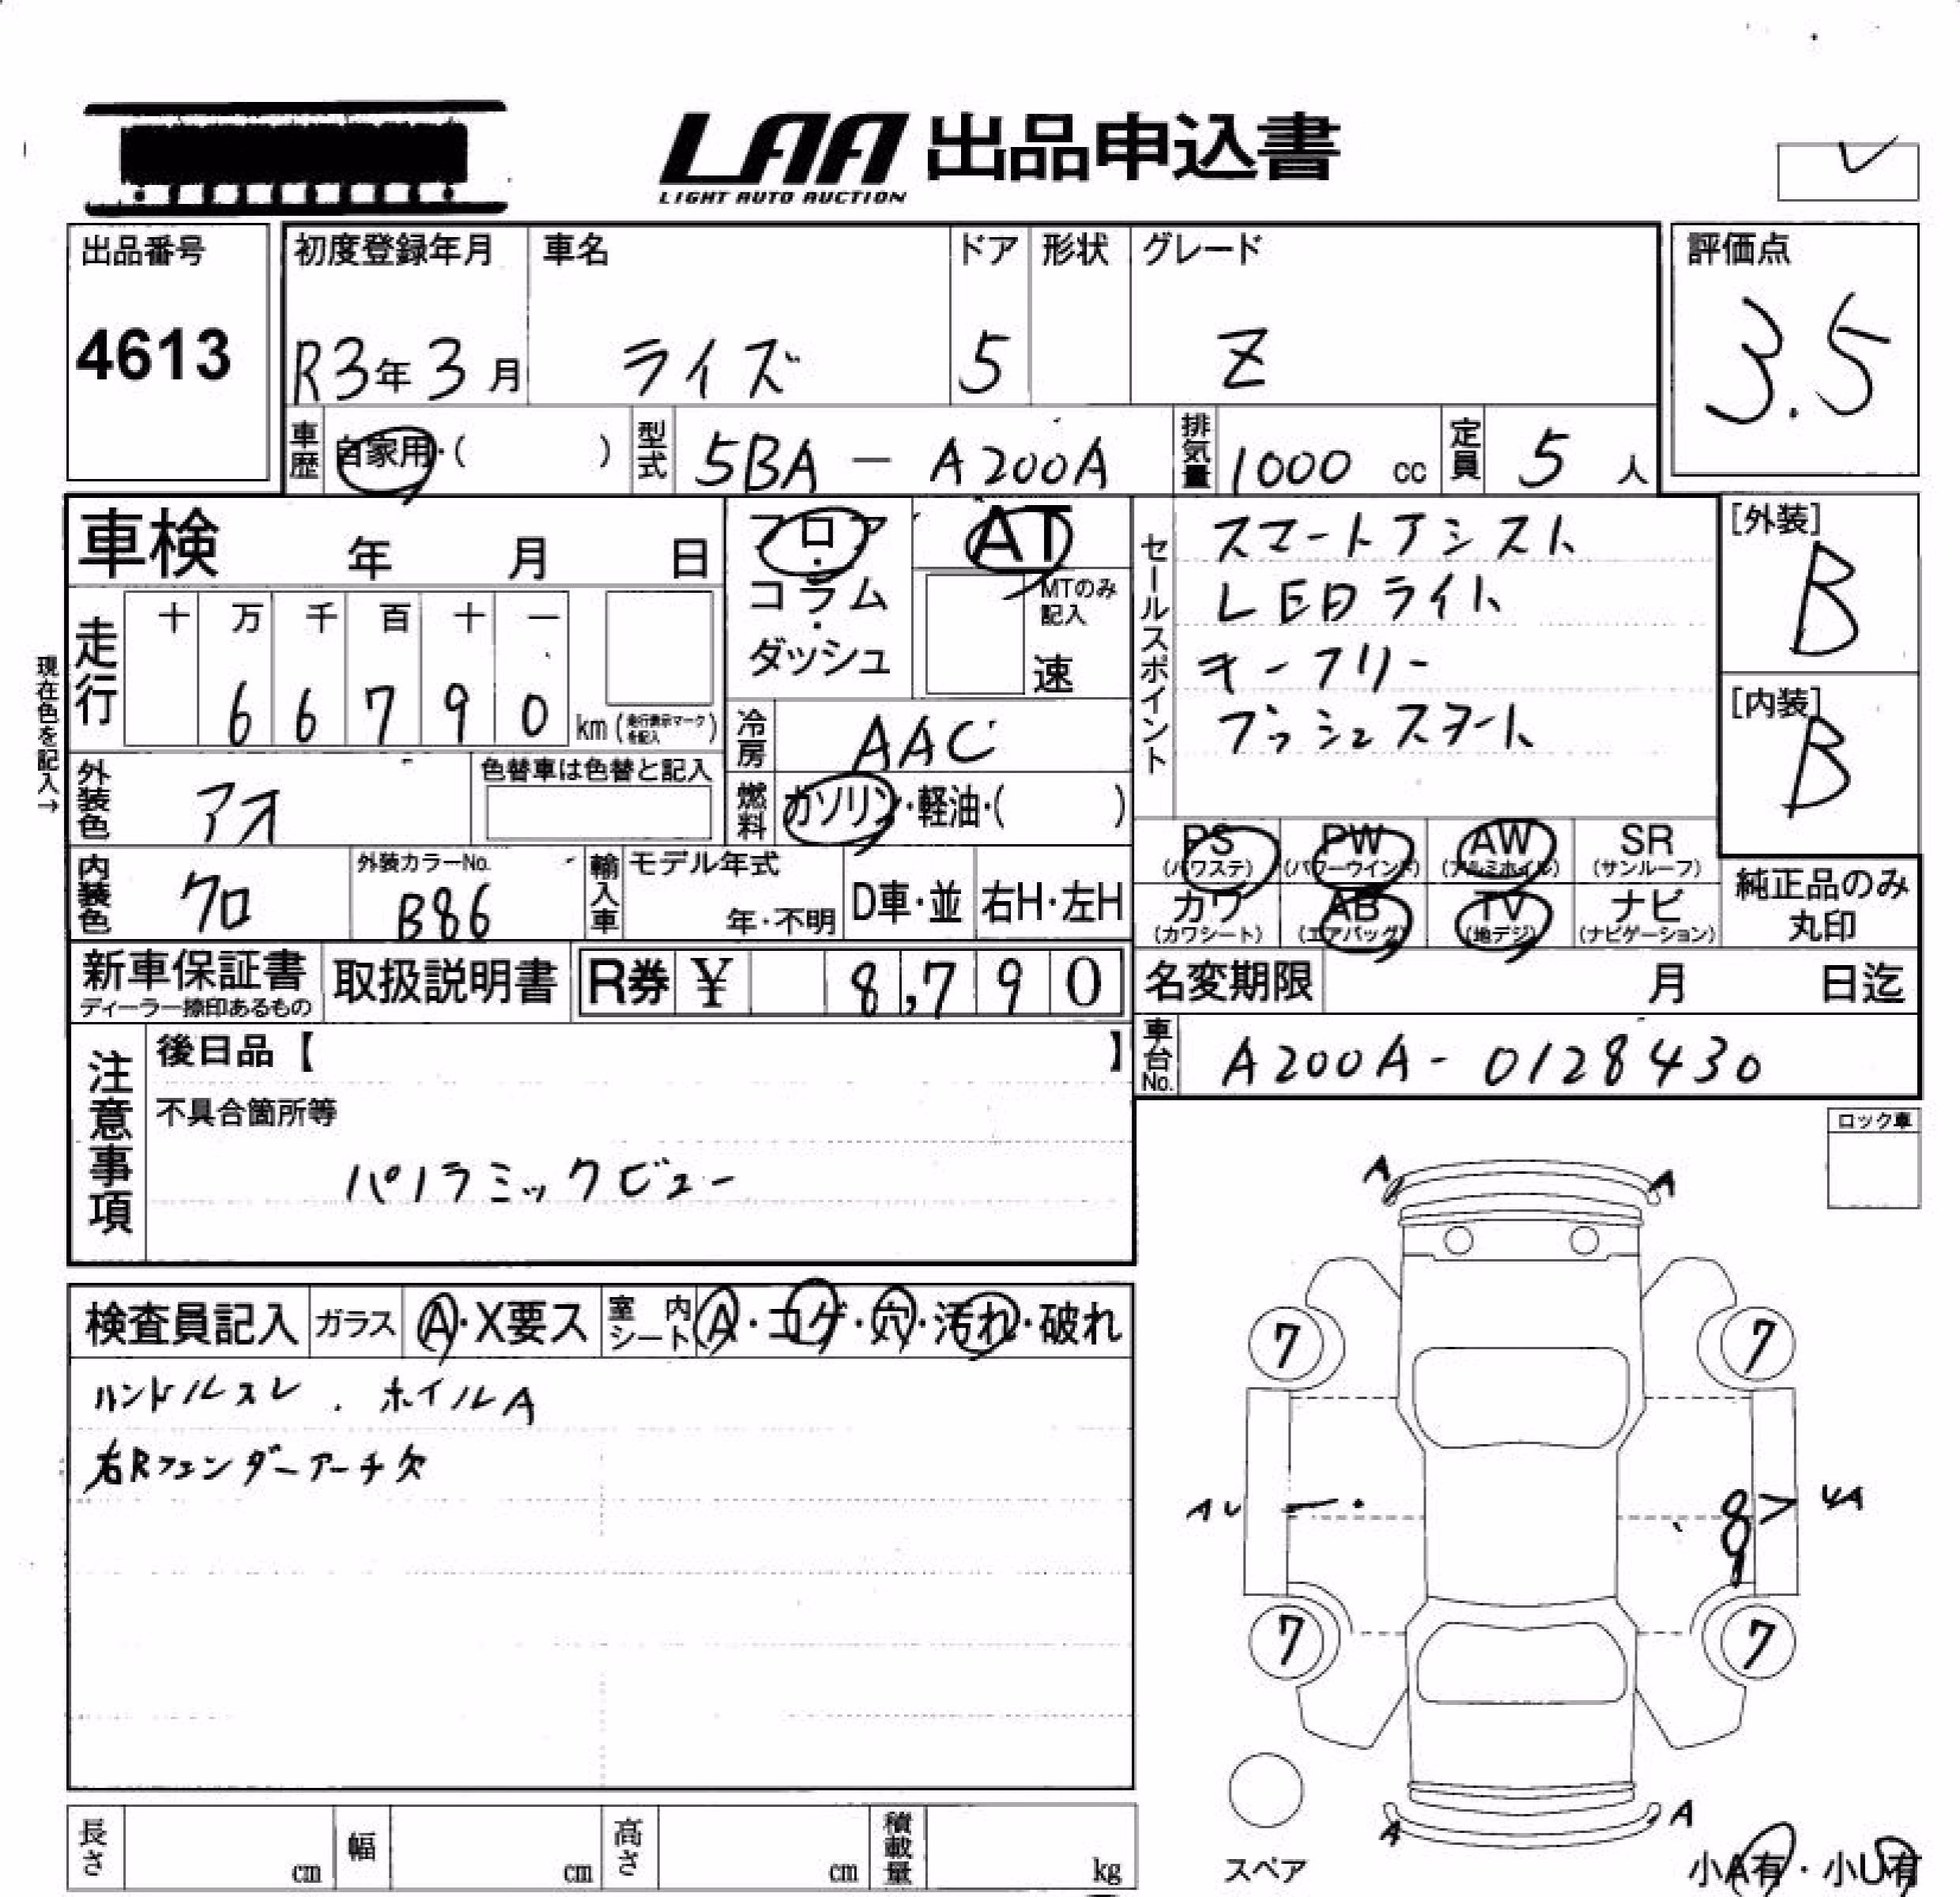 LAA 出品申込書
LIGHT AUTO AUCTION
出品番号
4613
初度登録年月 車名 ドア 形状 グレード
R3年3月 ライズ 5 Z
評価点
3.5
車歴 自家用・( ) 型式 5BA-A200A 排気量 1000 cc 定員 5 人
車検 年 月 日
フロア・コラム・ダッシュ
AT
MTのみ記入
速
現在色を記入→
走行 十 万 千 百 十 一
6 6 7 9 0 km (走行表示マークを記入)
冷房 AAC
外装色 アオ 色替車は色替と記入
燃料 ガソリン・軽油・( )
内装色 クロ 外装カラーNo. B86 輸入車 モデル年式 年・不明 D車・並 右H・左H
セールスポイント
スマートアシスト
LEDライト
キーフリー
プッシュスタート
[外装]
B
[内装]
B
PS (パワステ) PW (パワーウインド) AW (アルミホイル) SR (サンルーフ)
カワ (カワシート) AB (エアバッグ) TV (地デジ) ナビ (ナビゲーション)
純正品のみ丸印
新車保証書 ディーラー捺印あるもの 取扱説明書 R券 ¥ 8,790
名変期限 月 日迄
車台No. A200A-0128430
注意事項
後日品【 】
不具合箇所等
パノラミックビュー
ロック車
検査員記入 ガラス A・X要ス 室内シート A・コゲ・穴・汚れ・破れ
ハンドルスレ . ホイルA
右Rフェンダーアーチ欠
A A
7 7
AU UA
7 7
A A
スペア
小A有・小U有
長さ cm 幅 cm 高さ cm 積載量 kg